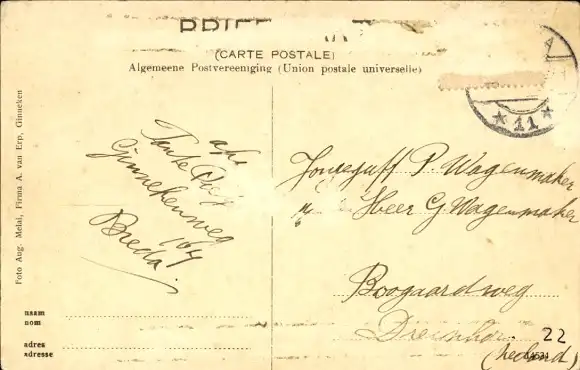 BRIEF
(CARTE POSTALE)
Algemeene Postvereeniging (Union postale universelle)
A
*11*
Foto Aug. Melai, Firma A. van Erp, Ginneken
afz
Tante
Ginnekenweg
164
Breda
Jongejuff P. Wagenmaker
Heer G Wagenmaker
Boogaardweg
22
naam
nom
adres
adresse